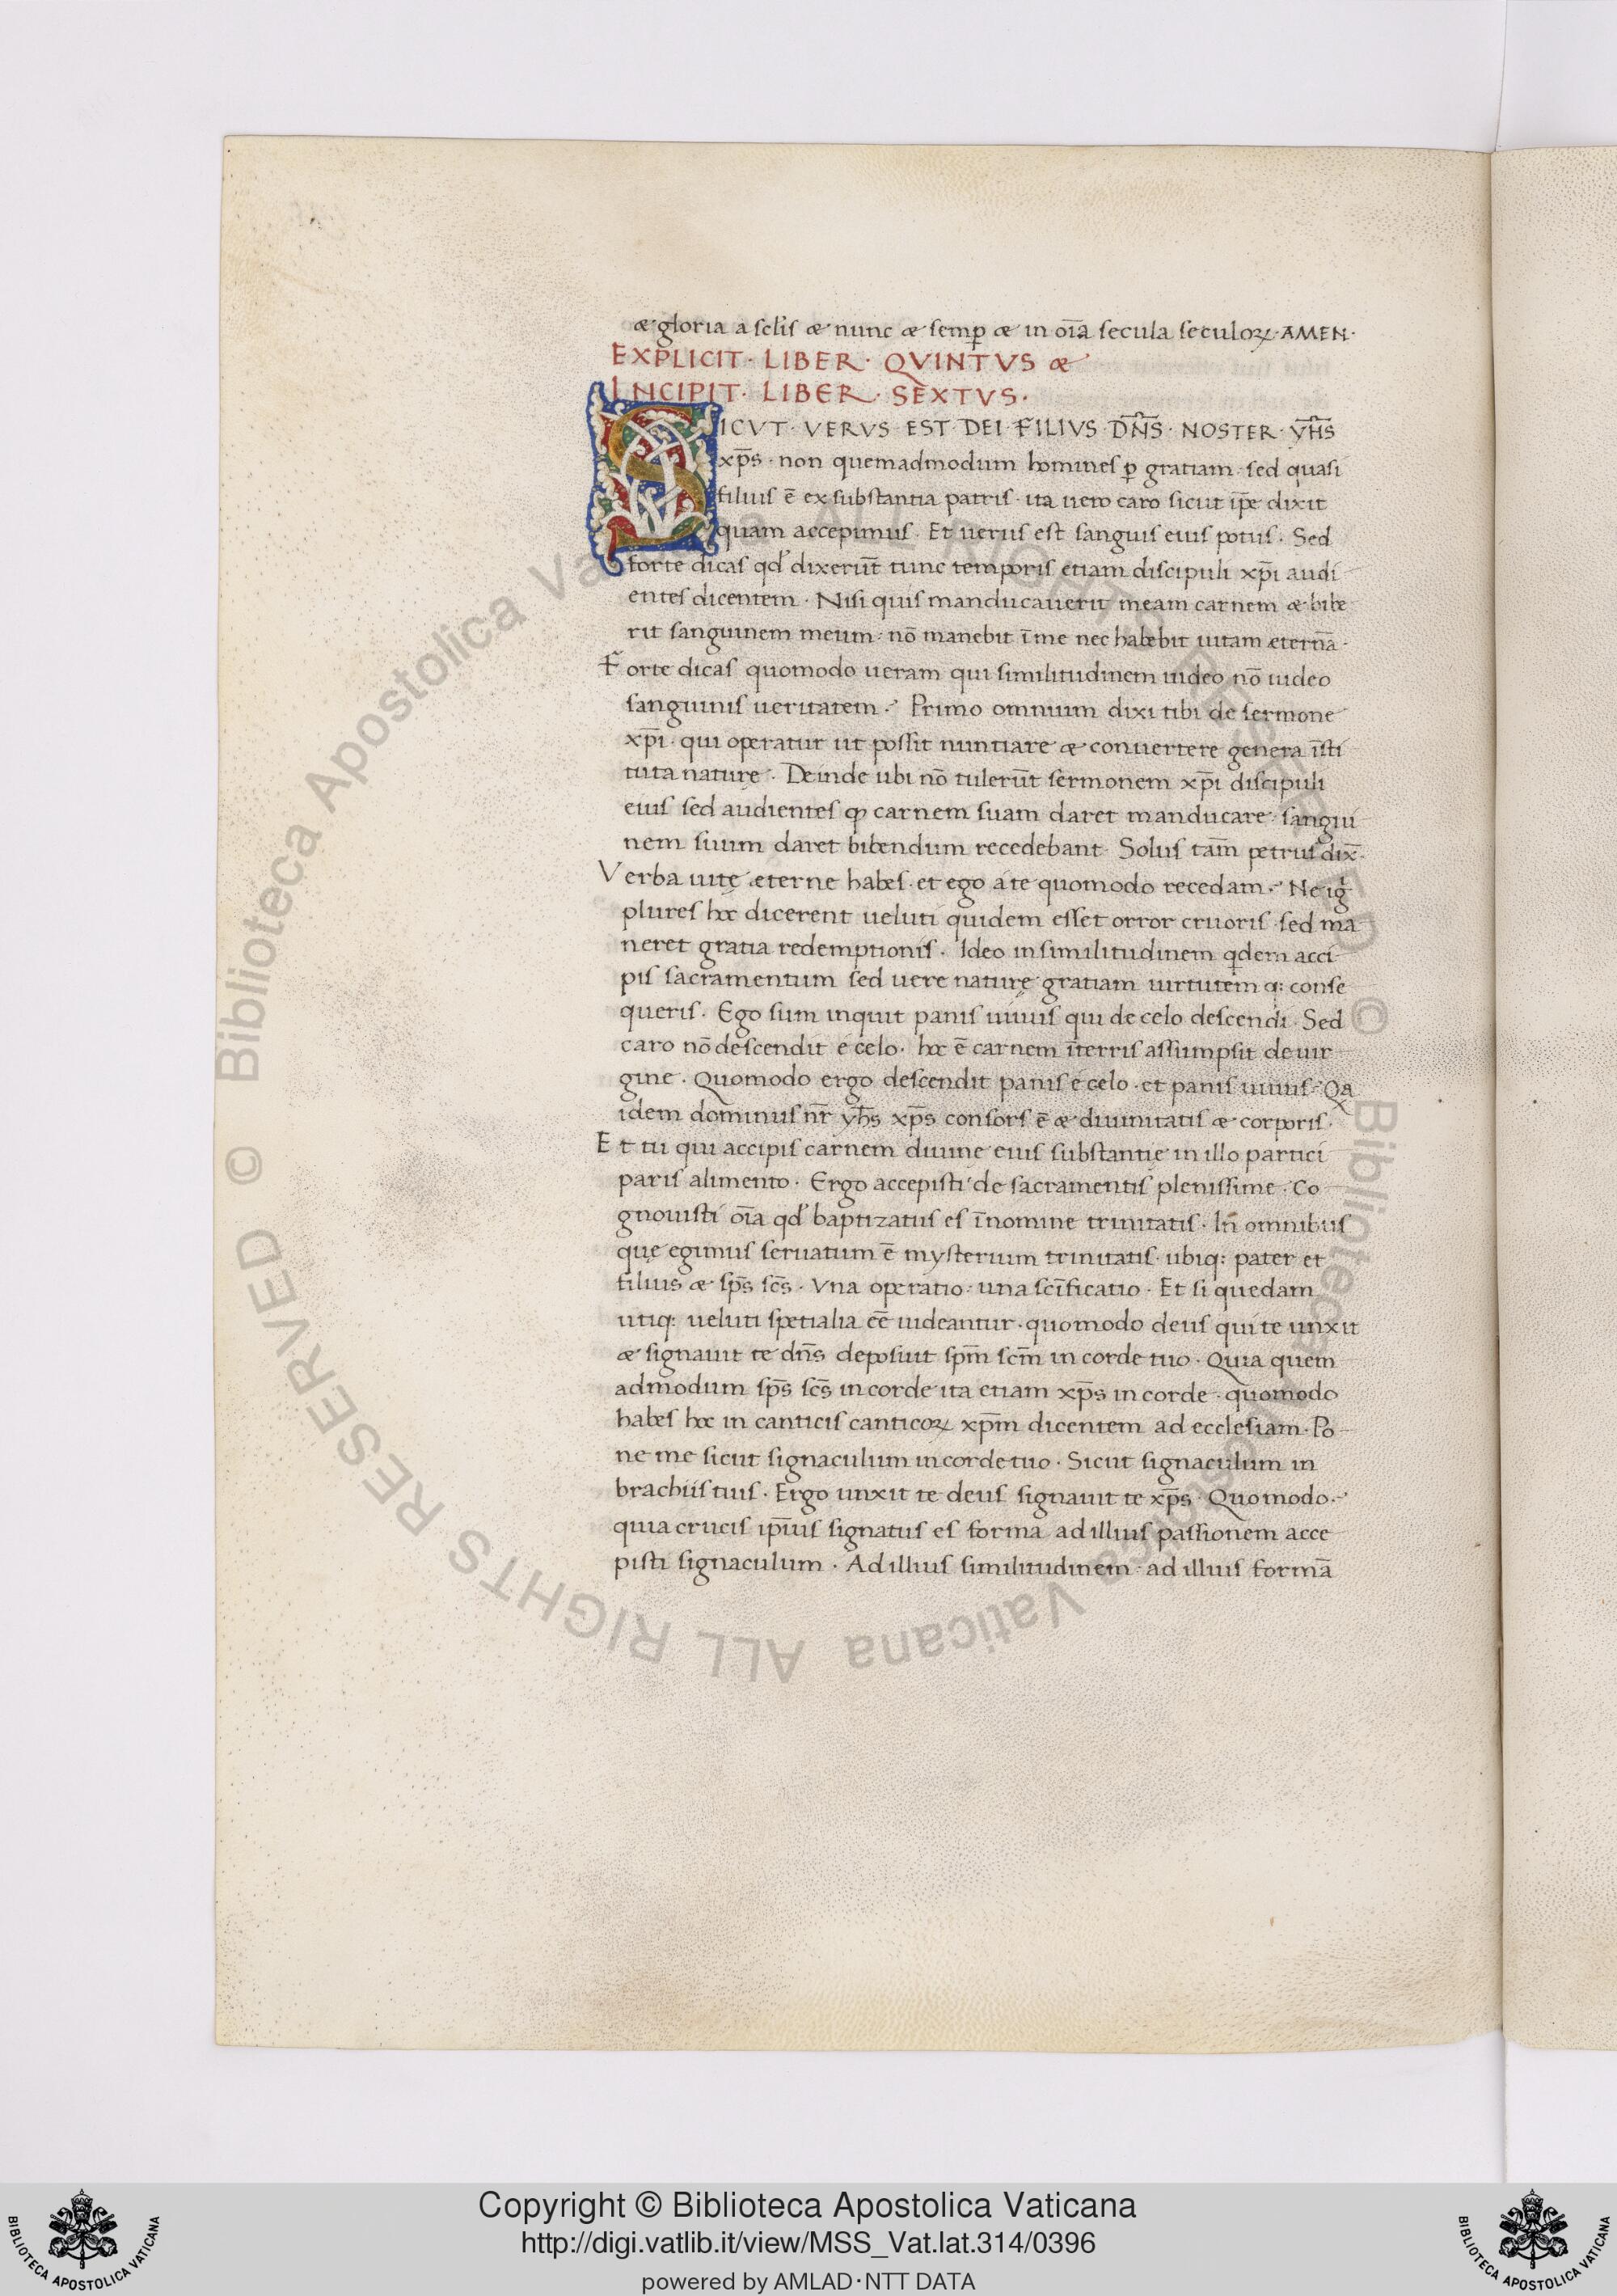 & gloria a sclis & nunc & semp & in oīa secula seculoꝝ · AMEN ·
EXPLICIT · LIBER · QVINTVS &
INCIPIT · LIBER · SEXTVS ·
SICVT · VERVS · EST · DEI · FILIVS · DN̄S · NOSTER · YH̄S
xp̄s · non quemadmodum homines ꝑ gratiam · sed quasi
filius ē ex substantia patris · ita uero caro sicut ip̄e dixit
quam accepimus · Et uerus est sanguis eius potus · Sed
forte dicas qd' dixerūt tunc temporis etiam discipuli xp̄i audi
entes dicentem · Nisi quis manducauerit meam carnem & bibe
rit sanguinem meum · nō manebit ī me nec habebit uitam æternā ·
Forte dicas quomodo ueram qui similitudinem uideo nō uideo
sanguinis ueritatem · Primo omnium dixi tibi de sermone
xp̄i · qui operatur ut possit nuntiare & conuertere genera īsti
tuta naturę · Deinde ubi nō tulerūt sermonem xp̄i discipuli
eius sed audientes ꝙ carnem suam daret manducare · sangui
nem suum daret bibendum recedebant · Solus tam̄ petrus dix̄ ·
Verba uitę æterne habes · et ego a te quomodo recedam · Ne igr̄
plures hoc dicerent ueluti quidem esset orror cruoris · sed ma
neret gratia redemptionis · Ideo in similitudinem qdem acci
pis sacramentum sed uere naturę gratiam uirtutem q: conse
queris · Ego sum inquit panis uiuus qui de celo descendi · Sed
caro nō descendit e celo · hoc ē carnem ī terris assumpsit de uir
gine · Quomodo ergo descendit panis e celo · et panis uiuus · Qa
idem dominus nr̄ yh̄s xp̄s consors ē & diuinitatis & corporis ·
Et tu qui accipis carnem diuine eius substantię in illo partici
paris alimento · Ergo accepisti de sacramentis plenissime · Co
gnouisti oīa qd' baptizatus es ī nomine trinitatis · In omnibus
quę egimus seruatum ē mysterium trinitatis · ubiq: pater et
filius & sp̄s sc̄s · Vna operatio · una scīficatio · Et si quedam
utiq: ueluti spetialia eē uideantur · quomodo deus qui te unxit
& signauit te dn̄s deposuit sp̄m sc̄m in corde tuo · Quia quem
admodum sp̄s sc̄s in corde ita etiam xp̄s in corde · quomodo
habes hoc in canticis canticoꝝ xp̄m dicentem ad ecclesiam · Po
ne me sicut signaculum in corde tuo · Sicut signaculum in
brachiis tuis · Ergo unxit te deus signauit te xp̄s · Quomodo ·
quia crucis ip̄ius signatus es forma ad illius passionem acce
pisti signaculum · Ad illius similitudinem · ad illius formā
© Biblioteca Apostolica Vaticana ALL RIGHTS RESERVED
© Biblioteca Apostolica Vaticana ALL RIGHTS RESERVED
BIBLIOTECA APOSTOLICA VATICANA
Copyright © Biblioteca Apostolica Vaticana
http://digi.vatlib.it/view/MSS_Vat.lat.314/0396
powered by AMLAD·NTT DATA
BIBLIOTECA APOSTOLICA VATICANA